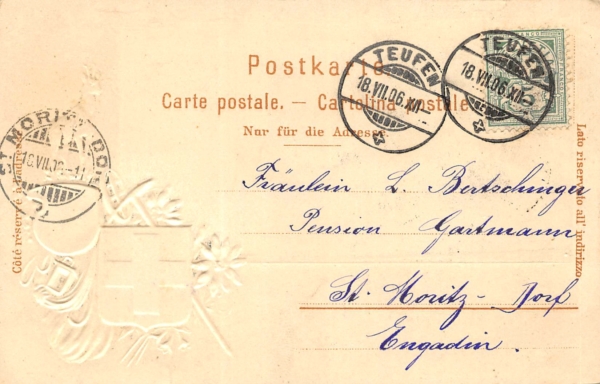 Postkarte.
Carte postale. — Cartolina postale.
Nur für die Adresse.
TEUFEN
18.VII.06.XII—
TEUFEN
18.VII.06.XII—
ST. MORITZ-DORF
18.VII.06.-11
Côté réservé à l'adresse.
Lato riservato all'indirizzo.
FRANCO
Fräulein L. Bertschinger
Pension Gartmann
St. Moritz-Dorf
Engadin.